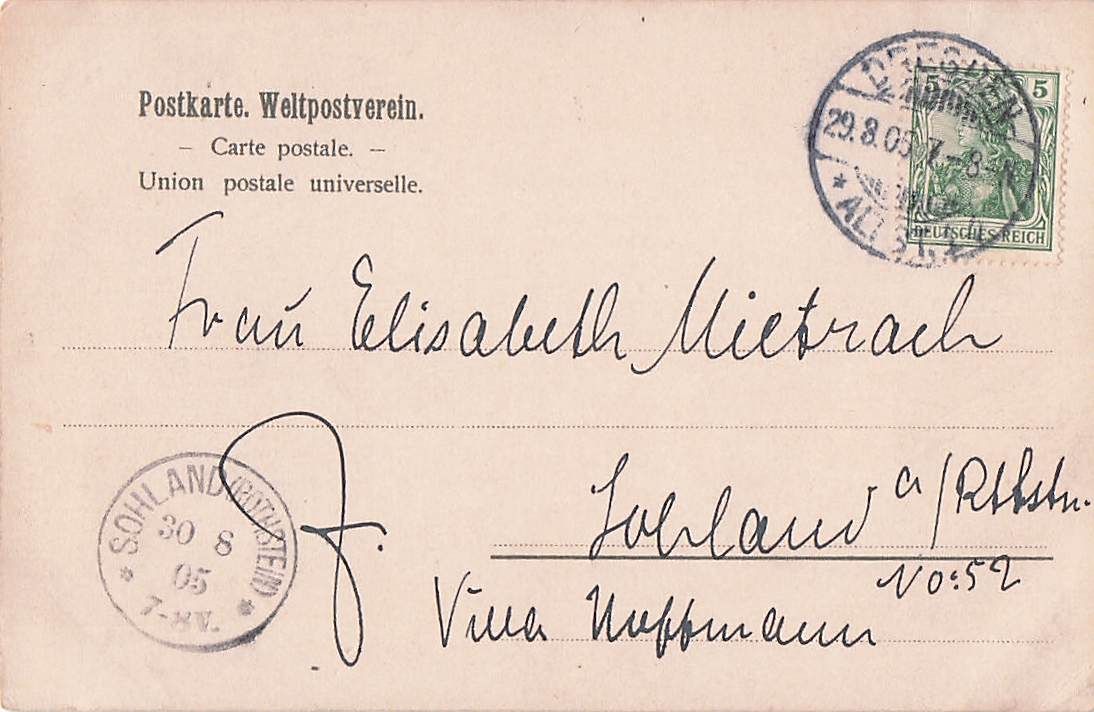 Postkarte. Weltpostverein.
– Carte postale. –
Union postale universelle.
DRESDEN
29.8.05. 7-8
* ALTST.
5 5
DEUTSCHES REICH
Frau Elisabeth Mietrach
Sohland a/Rthstn.
No: 52
Villa Hoffmann
SOHLAND (ROTHSTEIN)
30 8
05
* 7-8V. *